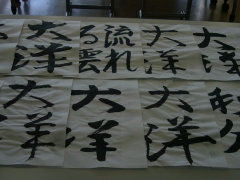 大洋
流れる雲
大洋
大洋
大洋
大洋
大洋